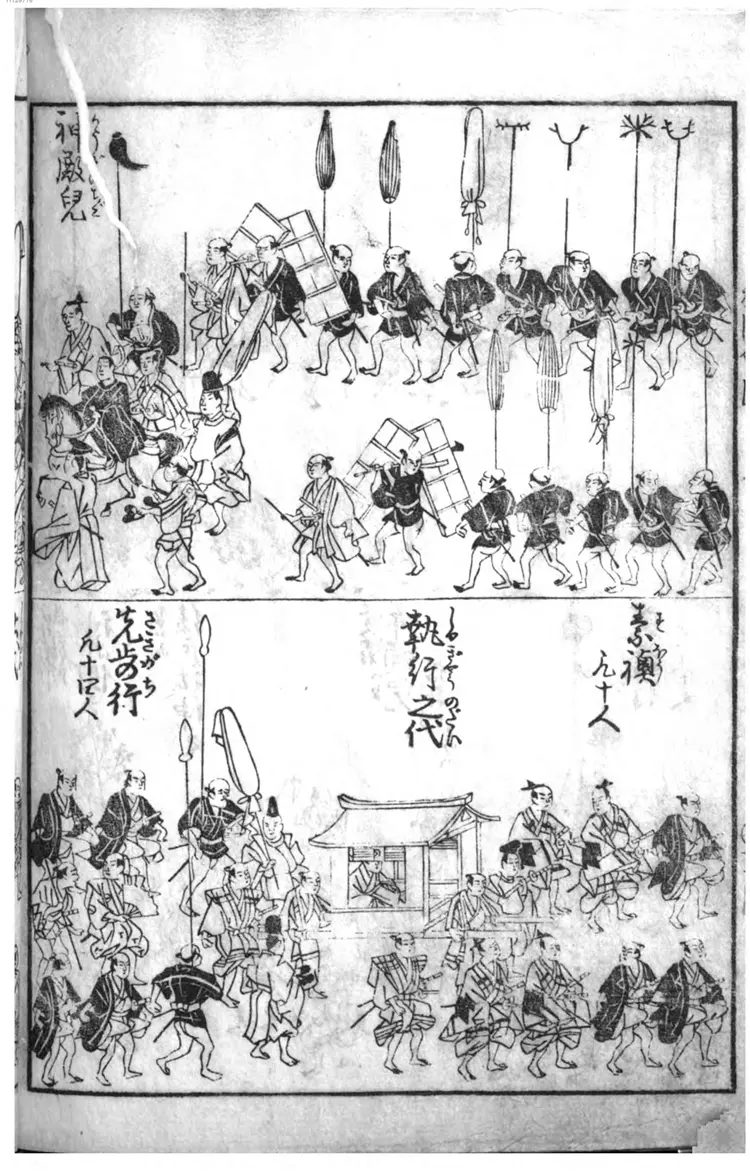 神殿兒
素襖
凡十人
執行之代
さきがち
先歩行
凡十四人